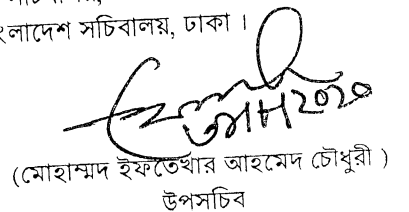 বাংলাদেশ সচিবালয়, ঢাকা ।
২০২০
(মোহাম্মদ ইফতেখার আহমেদ চৌধুরী )
উপসচিব